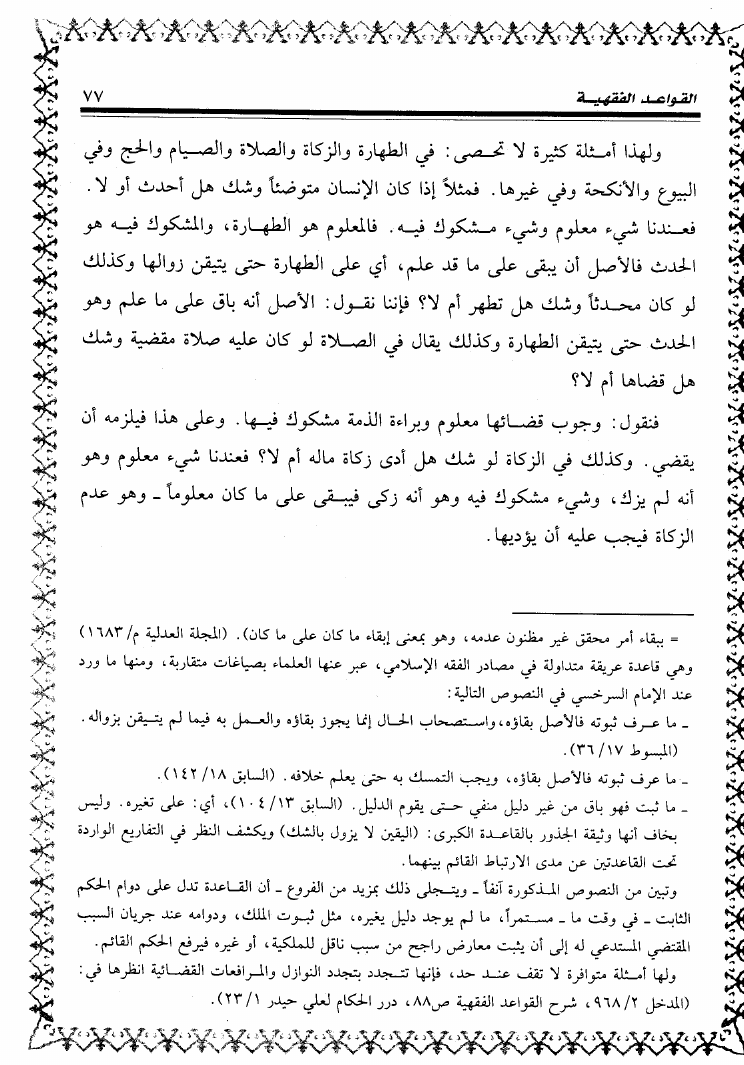 القواعد الفقهية
٧٧
ولهذا أمثلة كثيرة لا تحصى: في الطهارة والزكاة والصلاة والصيام والحج وفي
البيوع والأنكحة وفي غيرها. فمثلاً إذا كان الإنسان متوضئاً وشك هل أحدث أو لا.
فعندنا شيء معلوم وشيء مشكوك فيه. فالمعلوم هو الطهارة، والمشكوك فيه هو
الحدث فالأصل أن يبقى على ما قد علم، أي على الطهارة حتى يتيقن زوالها وكذلك
لو كان محدثاً وشك هل تطهر أم لا؟ فإننا نقول: الأصل أنه باق على ما علم وهو
الحدث حتى يتيقن الطهارة وكذلك يقال في الصلاة لو كان عليه صلاة مقضية وشك
هل قضاها أم لا؟
فنقول: وجوب قضائها معلوم وبراءة الذمة مشكوك فيها. وعلى هذا فيلزمه أن
يقضي. وكذلك في الزكاة لو شك هل أدى زكاة ماله أم لا؟ فعندنا شيء معلوم وهو
أنه لم يزك، وشيء مشكوك فيه وهو أنه زكى فيبقى على ما كان معلوماً ـ وهو عدم
الزكاة فيجب عليه أن يؤديها.
= ببقاء أمر محقق غير مظنون عدمه، وهو بمعنى إبقاء ما كان على ما كان). (المجلة العدلية م/١٦٨٣)
وهي قاعدة عريقة متداولة في مصادر الفقه الإسلامي، عبر عنها العلماء بصياغات متقاربة، ومنها ما ورد
عند الإمام السرخسي في النصوص التالية:
ـ ما عرف ثبوته فالأصل بقاؤه، واستصحاب الحال إنما يجوز بقاؤه والعمل به فيما لم يتيقن بزواله.
(المبسوط ٣٦/١٧).
ـ ما عرف ثبوته فالأصل بقاؤه، ويجب التمسك به حتى يعلم خلافه. (السابق ١٤٢/١٨).
ـ ما ثبت فهو باق من غير دليل منفي حتى يقوم الدليل. (السابق ١٠٤/١٣)، أي: على تغيره. وليس
بخاف أنها وثيقة الجذور بالقاعدة الكبرى: (اليقين لا يزول بالشك) ويكشف النظر في التفاريع الواردة
تحت القاعدتين عن مدى الارتباط القائم بينهما.
وتبين من النصوص المذكورة آنفاً ـ ويتجلى ذلك بمزيد من الفروع ـ أن القاعدة تدل على دوام الحكم
الثابت ـ في وقت ما ـ مستمراً، ما لم يوجد دليل يغيره، مثل ثبوت الملك، ودوامه عند جريان السبب
المقتضي المستدعي له إلى أن يثبت معارض راجح من سبب ناقل للملكية، أو غيره فيرفع الحكم القائم.
ولها أمثلة متوافرة لا تقف عند حد، فإنها تتجدد بتجدد النوازل والمرافعات القضائية انظرها في:
(المدخل ٩٦٨/٢، شرح القواعد الفقهية ص٨٨، درر الحكام لعلي حيدر ٢٣/١).